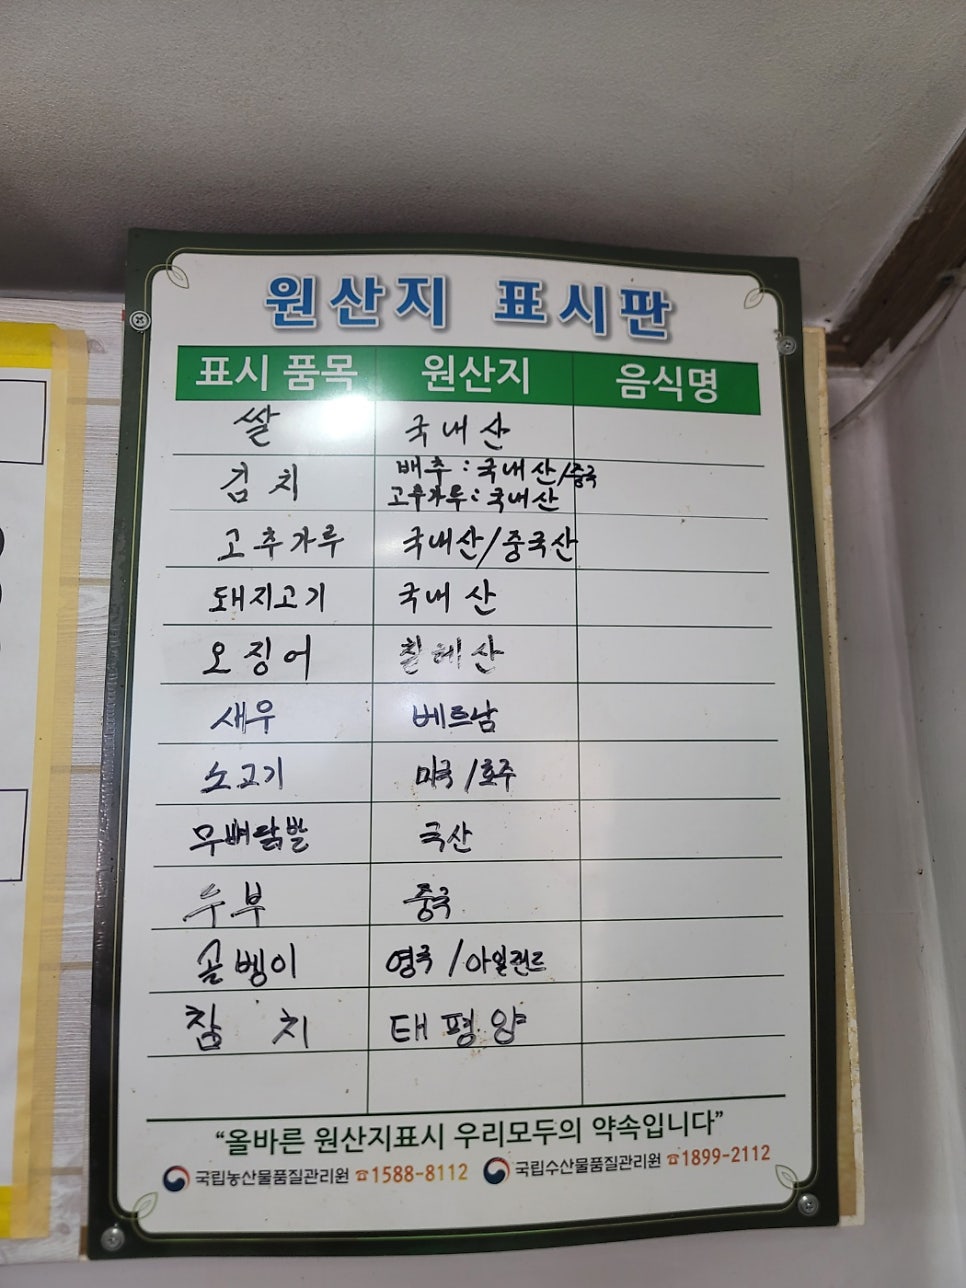 원산지 표시판
표시 품목 원산지 음식명
쌀 국내산
김치 배추:국내산/중국
고추가루:국내산
고추가루 국내산/중국산
돼지고기 국내산
오징어 칠레산
새우 베트남
소고기 미국/호주
무뼈닭발 국산
두부 중국
골벵이 영국/아일랜드
참치 태평양
“올바른 원산지표시 우리모두의 약속입니다”
국립농산물품질관리원 ☎1588-8112 국립수산물품질관리원 ☎1899-2112